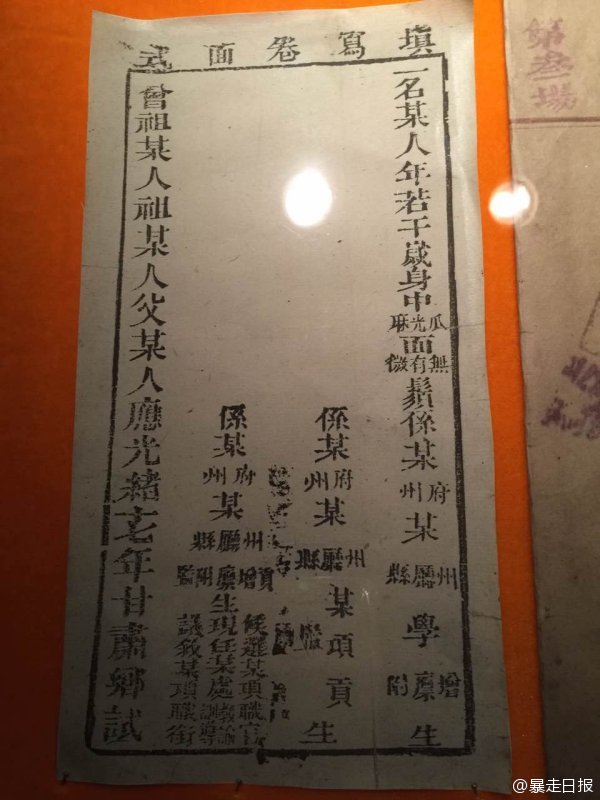 填寫卷面式
一名某人年若干歲身中瓜光麻面無有微鬚係某府州某州廳縣學增廩附生
係某府州某州廳縣某項貢生
係某府州某州廳縣貢增廩附監生候選某項職官現任某處訓導議敘某項職銜
曾祖某人祖某人父某人應光緒年甘肅鄉試
第叁場
@暴走日报